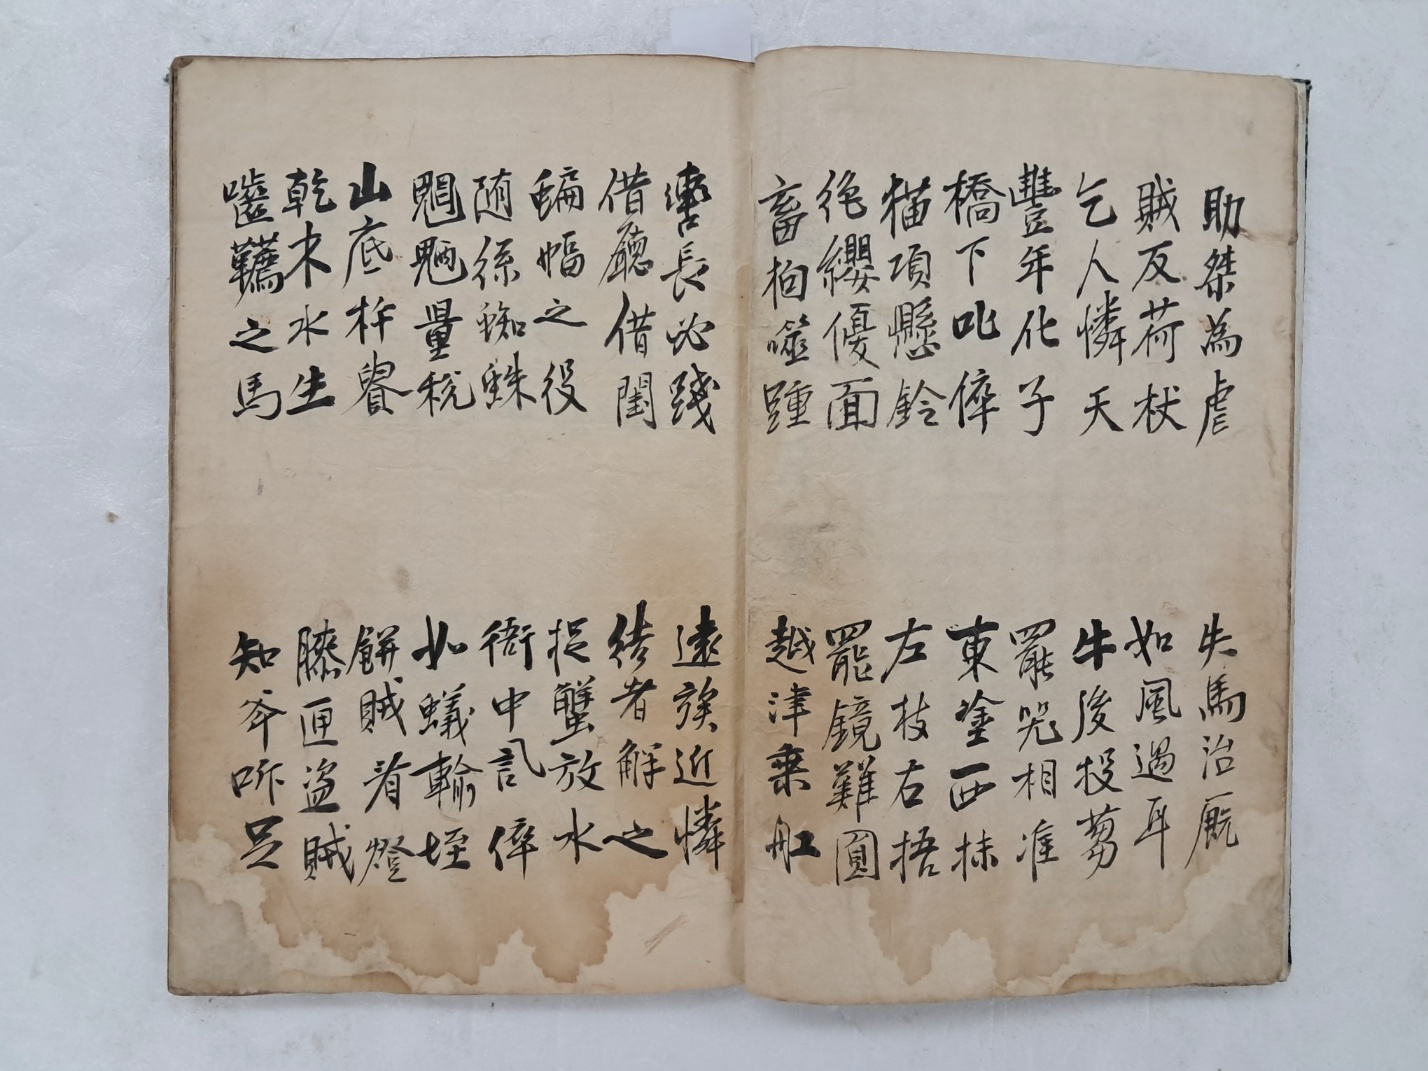 助桀為虐
失馬治厩
賊反荷杖
如風過耳
乞人憐天
牛後投芻
豐年化子
罷咒相准
橋下叱倅
東塗西抹
猫項懸鈴
左枝右捂
絶纓優面
罷鏡難圓
畜狗噬踵
越津乗舡
轡長必踐
遠族近憐
借廳借閨
结者解之
蝙蝠之役
捉蟹放水
随絲蜘蛛
衙中訊倅
魍魎量税
如蟻輸垤
山底杵
餅賊看燈
乾木水生
膝匣盗賊
嚂韉之馬
知斧吘足